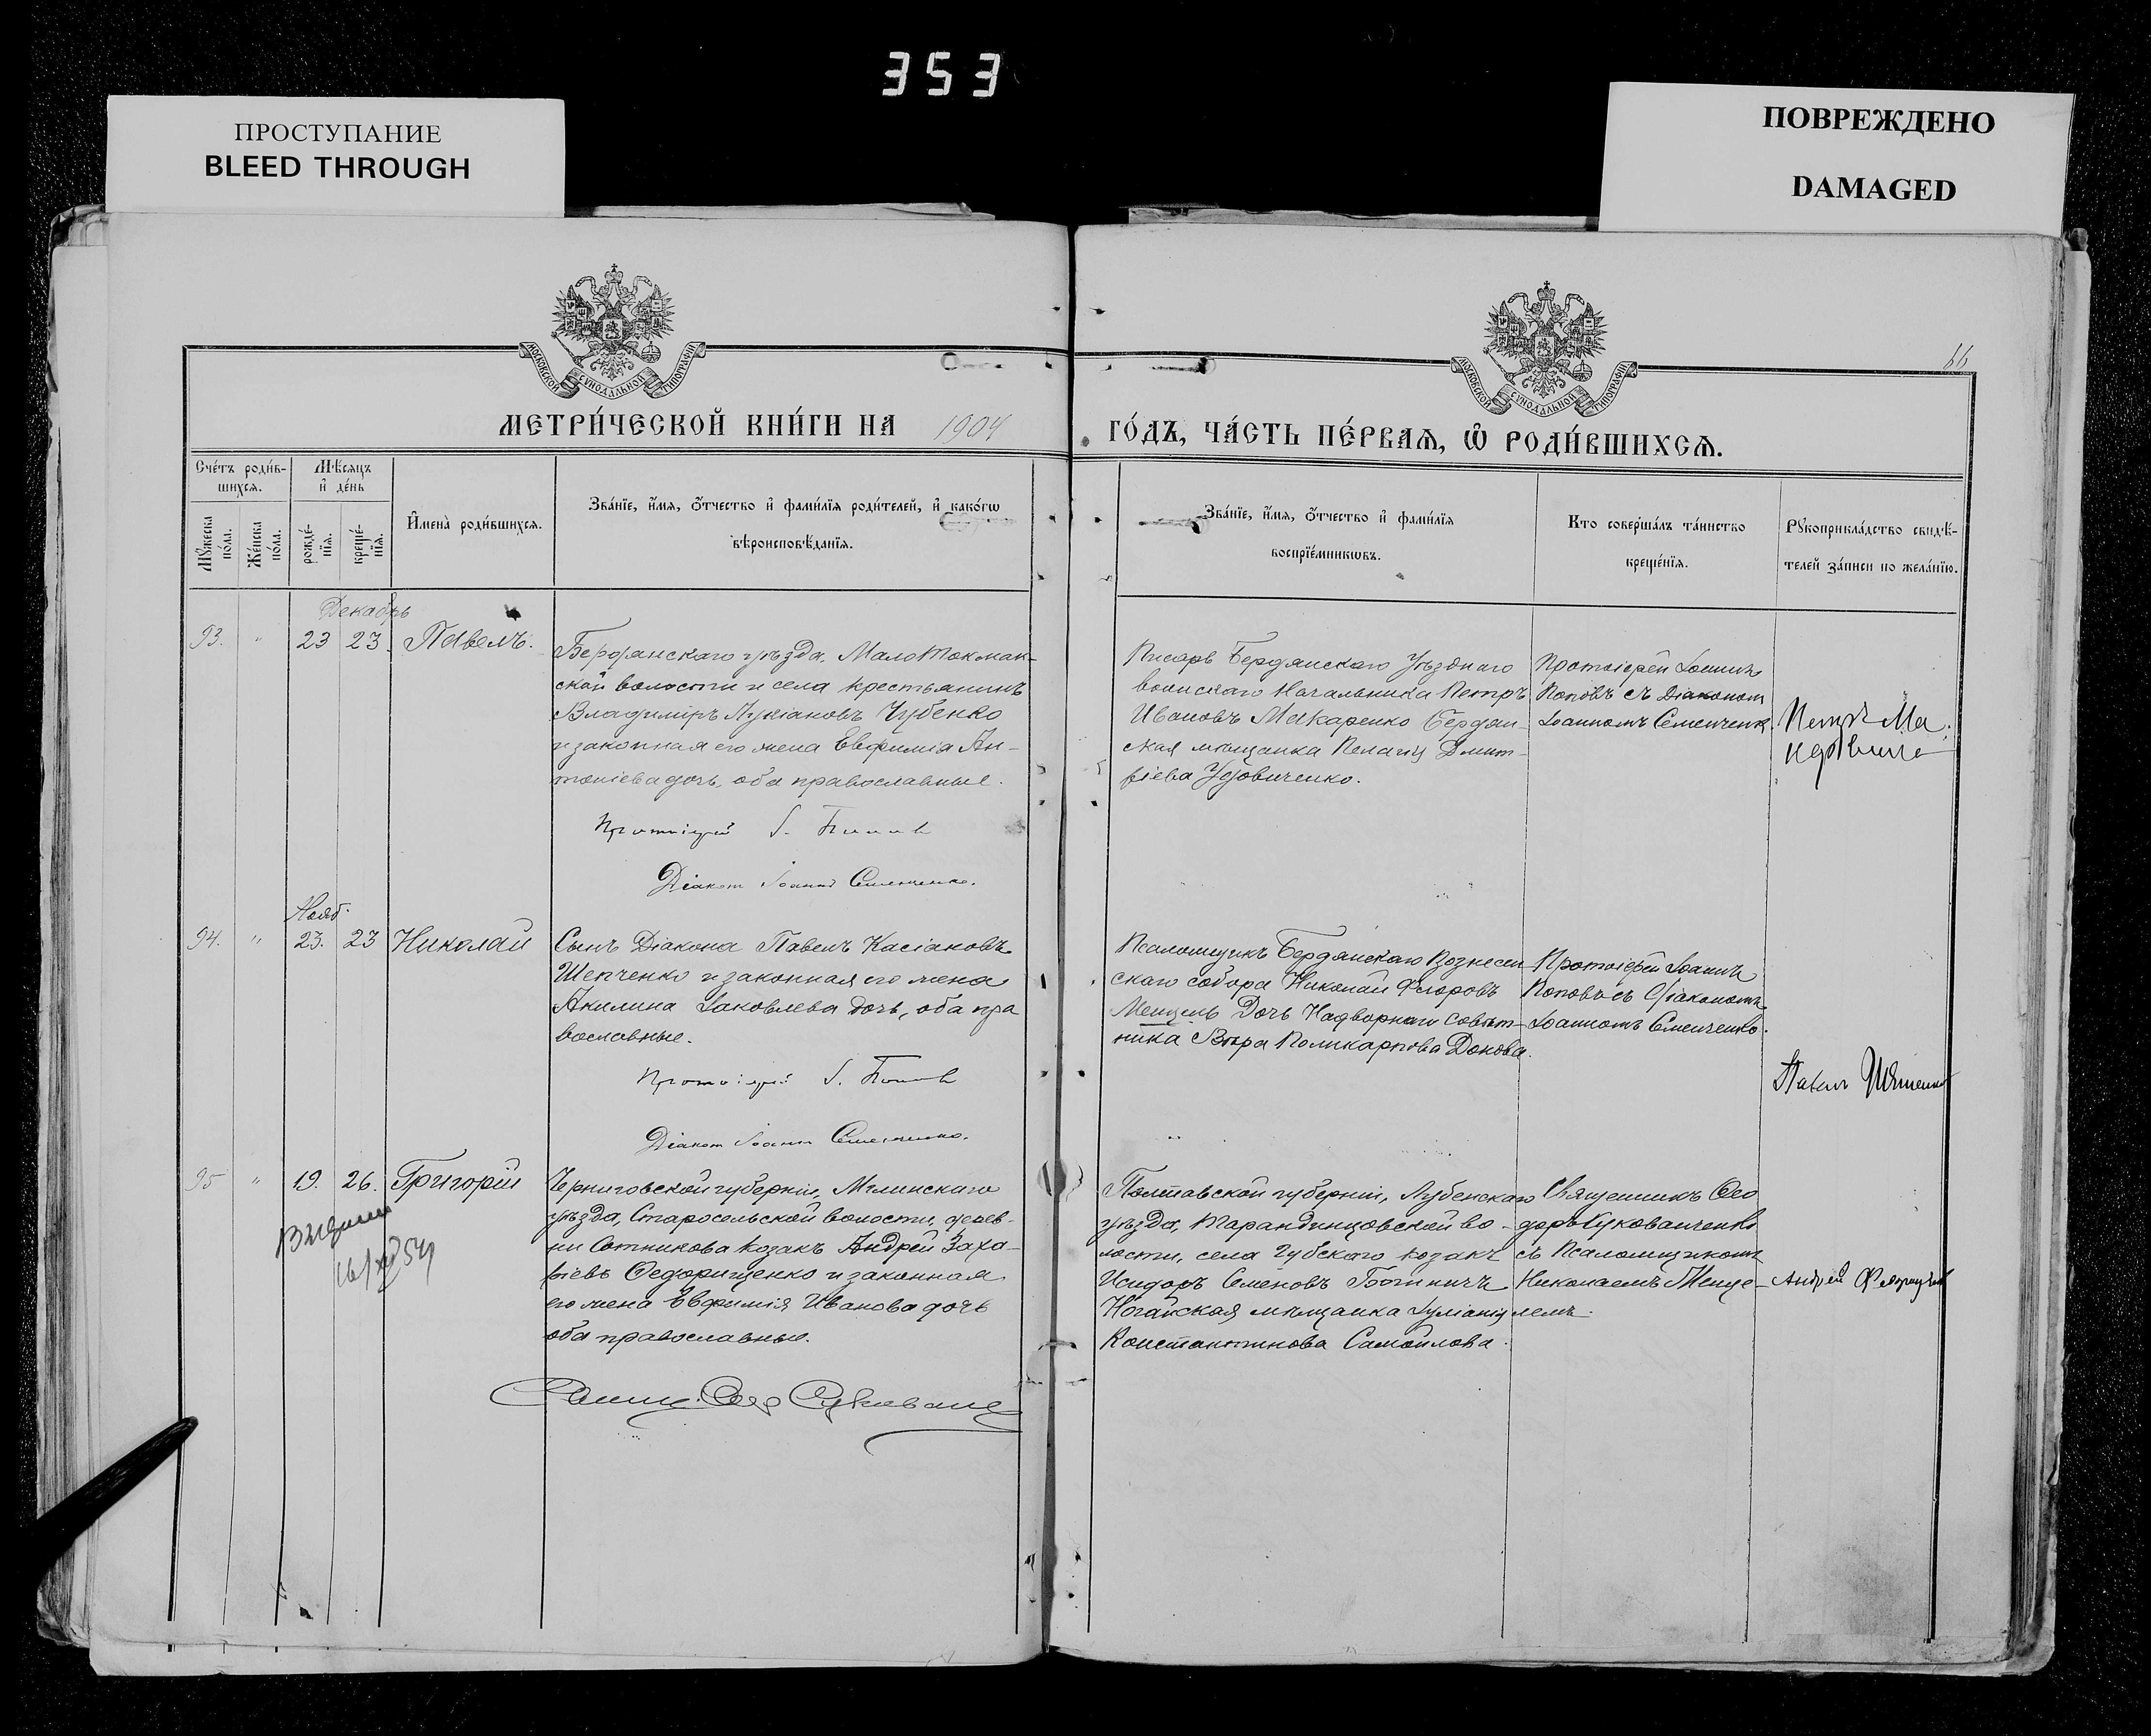 353
ПРОСТУПАНИЕ
BLEED THROUGH
ПОВРЕЖДЕНО
DAMAGED
МОСКОВСКОЙ СУНОДАЛЬНОЙ ТИПОГРАФІИ
МОСКОВСКОЙ СУНОДАЛЬНОЙ ТИПОГРАФІИ
66
МЕТРИ́ЧЕСКОЙ КНИ́ГИ НА 1904
ГО́ДЪ, ЧА́СТЬ ПЕ́РВАЯ, Ѡ҆ РОДИ́ВШИХСЯ.
Сче́тъ роди́в-
шихся.
Мꙋ́жеска по́ла.
Же́нска по́ла.
Мѣ́сяцъ
и҆ де́нь
рожде́-
нїя.
креще́-
нїя.
И҆мена̀ роди́вшихся.
Зва́нїе, и҆́мя, ѻ҆́тчество и҆ фами́лїя роди́телей, и҆ како́гѡ
вѣроисповѣ́данїя.
Зва́нїе, и҆́мя, ѻ҆́тчество и҆ фами́лїя
воспрїе́мникѡвъ.
Кто соверша́лъ та́инство
креще́нїя.
Рꙋкоприкла́дство свидѣ́-
телей за́писи по жела́нїю.
Декабрь
93. " 23 23. Павелъ.
Бердянскаго уѣзда, Мало Токмак-
ской волости и села крестьянинъ
Владиміръ Лукіановъ Чубенко
и законная его жена Евфимія Ан-
тоніева дочь, оба православные.
Протоіерей І. Попов
Діакон Іоанн Семенченко.
Писарь Бердянскаго Уѣзднаго
воинскаго Начальника Петръ
Ивановъ Макаренко Бердян-
ская мѣщанка Пелагія Дмит-
ріева Удовиченко.
Протоіерей Іоаннъ
Поповъ съ Діакономъ
Іоанномъ Семенченко.
Петръ Ма
Нояб.
94. " 23. 23 Николай
Сынъ Діакона Павелъ Касіановъ
Шепченко и законная его жена
Акилина Іаковлева дочь, оба пра
вославные.
Протоіерей І. Попов
Діакон Іоанн Семенченко.
Псаломщикъ Бердянскаго Вознесен
скаго собора Николай Федоровъ
Менцель Дочь Надворнаго совѣт-
ника Вѣра Поликарпова Донова.
Протоіерей Іоаннъ
Поповъ съ Діакономъ
Іоанномъ Семенченко.
Павелъ
95 " 19. 26. Григорій
Черниговской губерніи, Мглинскаго
уѣзда, Старосельской волости, дерев-
ни Сотникова козакъ Андрей Заха-
ріевъ Ѳедорищенко и законная
его жена Евфимія Иванова дочь
оба православные.
Полтавской губерніи, Лубенскаго
уѣзда, Тарандинцовской во-
лости, села Губскаго козакъ
Исидоръ Семеновъ
Ногайская мѣщанка Іуліанія
Константинова Самойлова.
Священникъ Ѳео
доръ Кукованченко
съ Псаломщикомъ
Николаемъ Менце-
лемъ.
Андрей